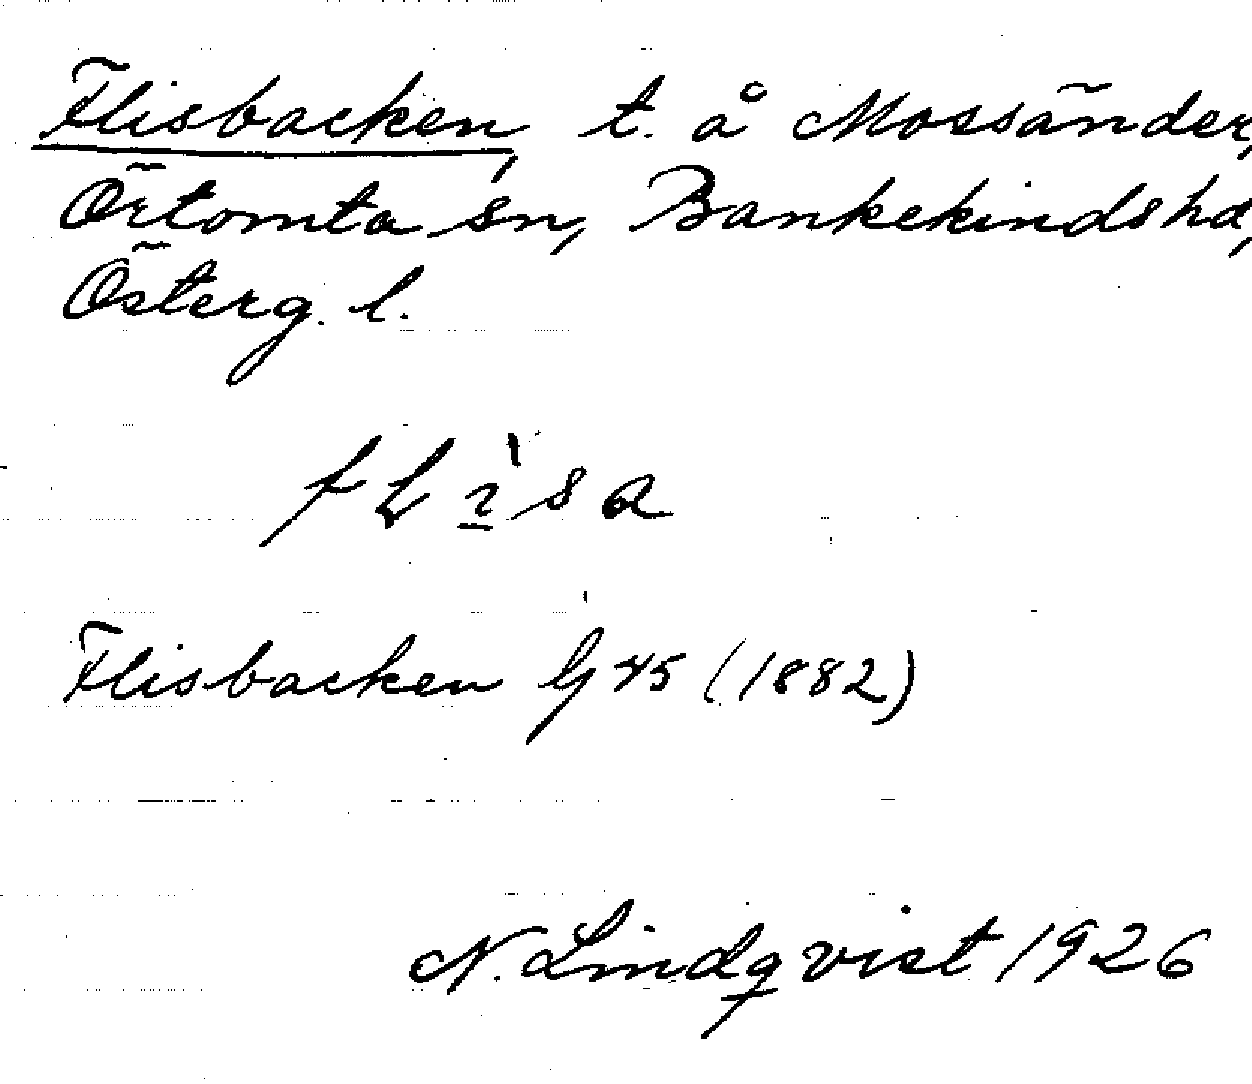 Flisbacken, t. å Mossänder,
Örtomta sn, Bankekinds hd,
Österg. l.
flìsa
Flisbacken G 45 (1882)
N. Lindqvist 1926